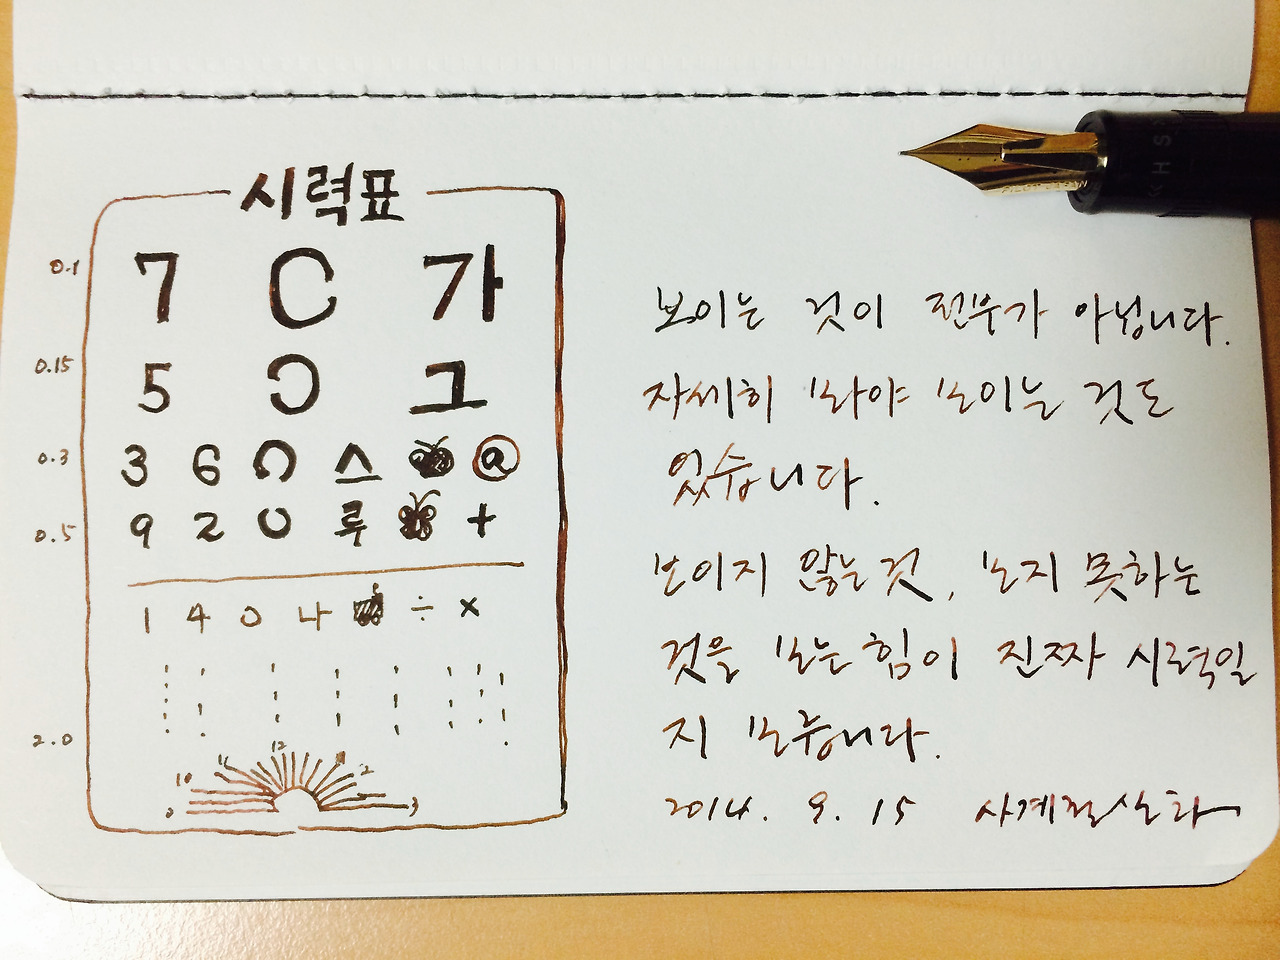 시력표
0.1 7 가
0.15 5 그
0.3 3 6 스 @
0.5 9 2 루 +
1 4 나 ÷ ×
2.0
10 12 2
9 3
보이는 것이 전부가 아닙니다.
자세히 봐야 보이는 것도
있습니다.
보이지 않는 것, 보지 못하는
것을 보는 힘이 진짜 시력일
지 모릅니다.
2014. 9. 15